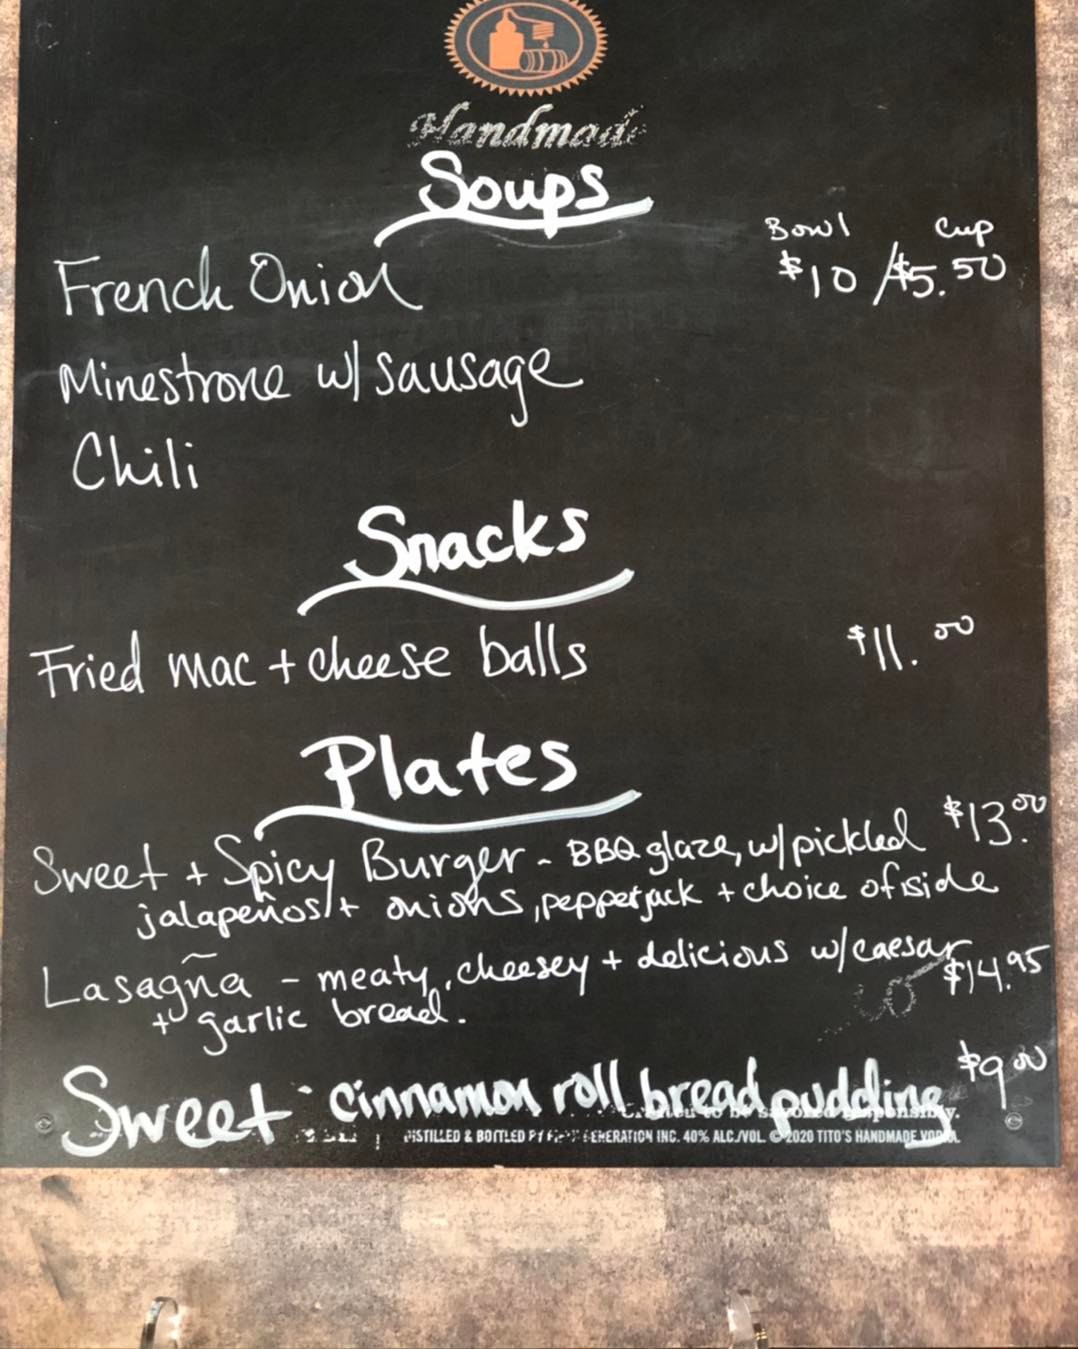 Handmade
Soups
Bowl Cup
French Onion $10 / $5.50
Minestrone w/ sausage
Chili
Snacks
Fried mac + cheese balls $11.00
Plates
Sweet + Spicy Burger - BBQ glaze, w/ pickled $13.00
jalapeños + onions, pepperjack + choice of side
Lasagña - meaty, cheesey + delicious w/ caesar $14.95
+ garlic bread.
Sweet - cinnamon roll bread pudding $9.00
to be savored responsibly.
DISTILLED & BOTTLED BY GENERATION INC. 40% ALC./VOL. © 2020 TITO'S HANDMADE VODKA.